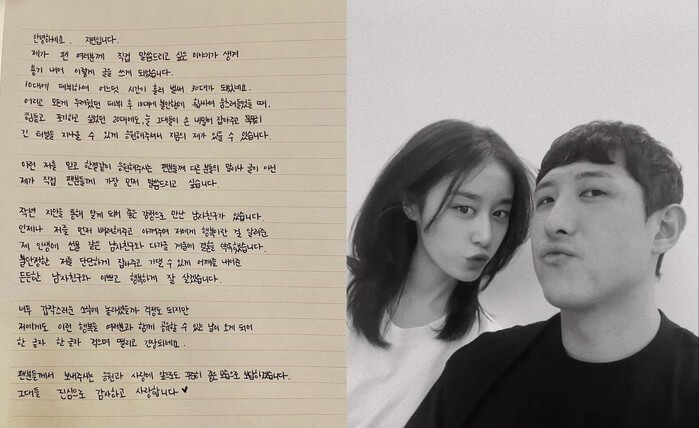 안녕하세요. 지연입니다.
제가 팬 여러분께 직접 말씀드리고 싶은 이야기가 생겨
용기 내어 이렇게 글을 쓰게 되었습니다.
10대에 데뷔하여 어느덧 시간이 흘러 벌써 30대가 되었네요.
어리고 모든게 두려웠던 데뷔 후 10대에 불안함에 휩싸여 움츠려들었을 때,
힘들고 포기하고 싶었던 20대에도, 늘 그대들이 손 내밀어 잡아주고 묵묵히
긴 터널을 지나올 수 있게 응원해주셔서 지금의 제가 있을 수 있었습니다.
이런 저를 믿고 한결같이 응원해주시는 팬분들께 다른 분들의 말이나 글이 아닌
제가 직접 팬분들께 가장 먼저 말씀드리고 싶습니다.
작년 지인을 통해 알게 되어 좋은 감정으로 만난 남자친구가 있습니다.
언제나 저를 먼저 배려해주고 아껴주며 저에게 행복이란 걸 알려준
제 인생에 선물 같은 남자친구와 다가올 겨울에 결혼을 약속했습니다.
불안정한 저를 단단하게 잡아주고 기댈 수 있게 어깨를 내어준
든든한 남자친구와 예쁘고 행복하게 잘 살겠습니다.
너무 갑작스러운 소식에 놀라셨을까 걱정도 되지만
저에게도 이런 행복을 여러분과 함께 공유할 수 있는 날이 오게 되어
한 글자 한 글자 적으며 떨리고 긴장되네요.
팬분들께서 보내주시는 응원과 사랑에 앞으로도 꾸준히 좋은 모습으로 보답하겠습니다.
그대들 진심으로 감사하고 사랑합니다 ♥